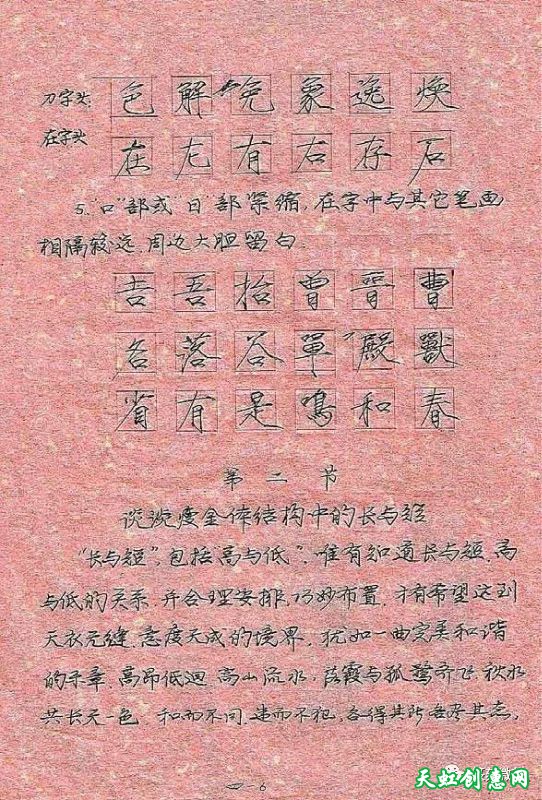 刀字头: 色 解 免 象 逸 焕
在字头 在 尤 有 右 存 石
5."口"部或"日"部紧缩,在字中与其它笔画
相隔较远,周边大胆留白.
吉 吾 抬 曾 晋 曹
名 落 谷 單 殿 獸
省 有 是 鳴 和 春
第二节
谈谈瘦金体结构中的长与短
"长与短",包括"高与低".唯有知道长与短.高
与低的关系,并合理安排,巧妙布置,才有希望达到
天衣无缝,意度天成的境界.犹如一曲完美和谐
的乐章.高昂低迴,高山流水,落霞与孤鹜齐飞,秋水
共长天一色.和而不同,违而不犯,各得其所各尽其态。
6
天虹创意网